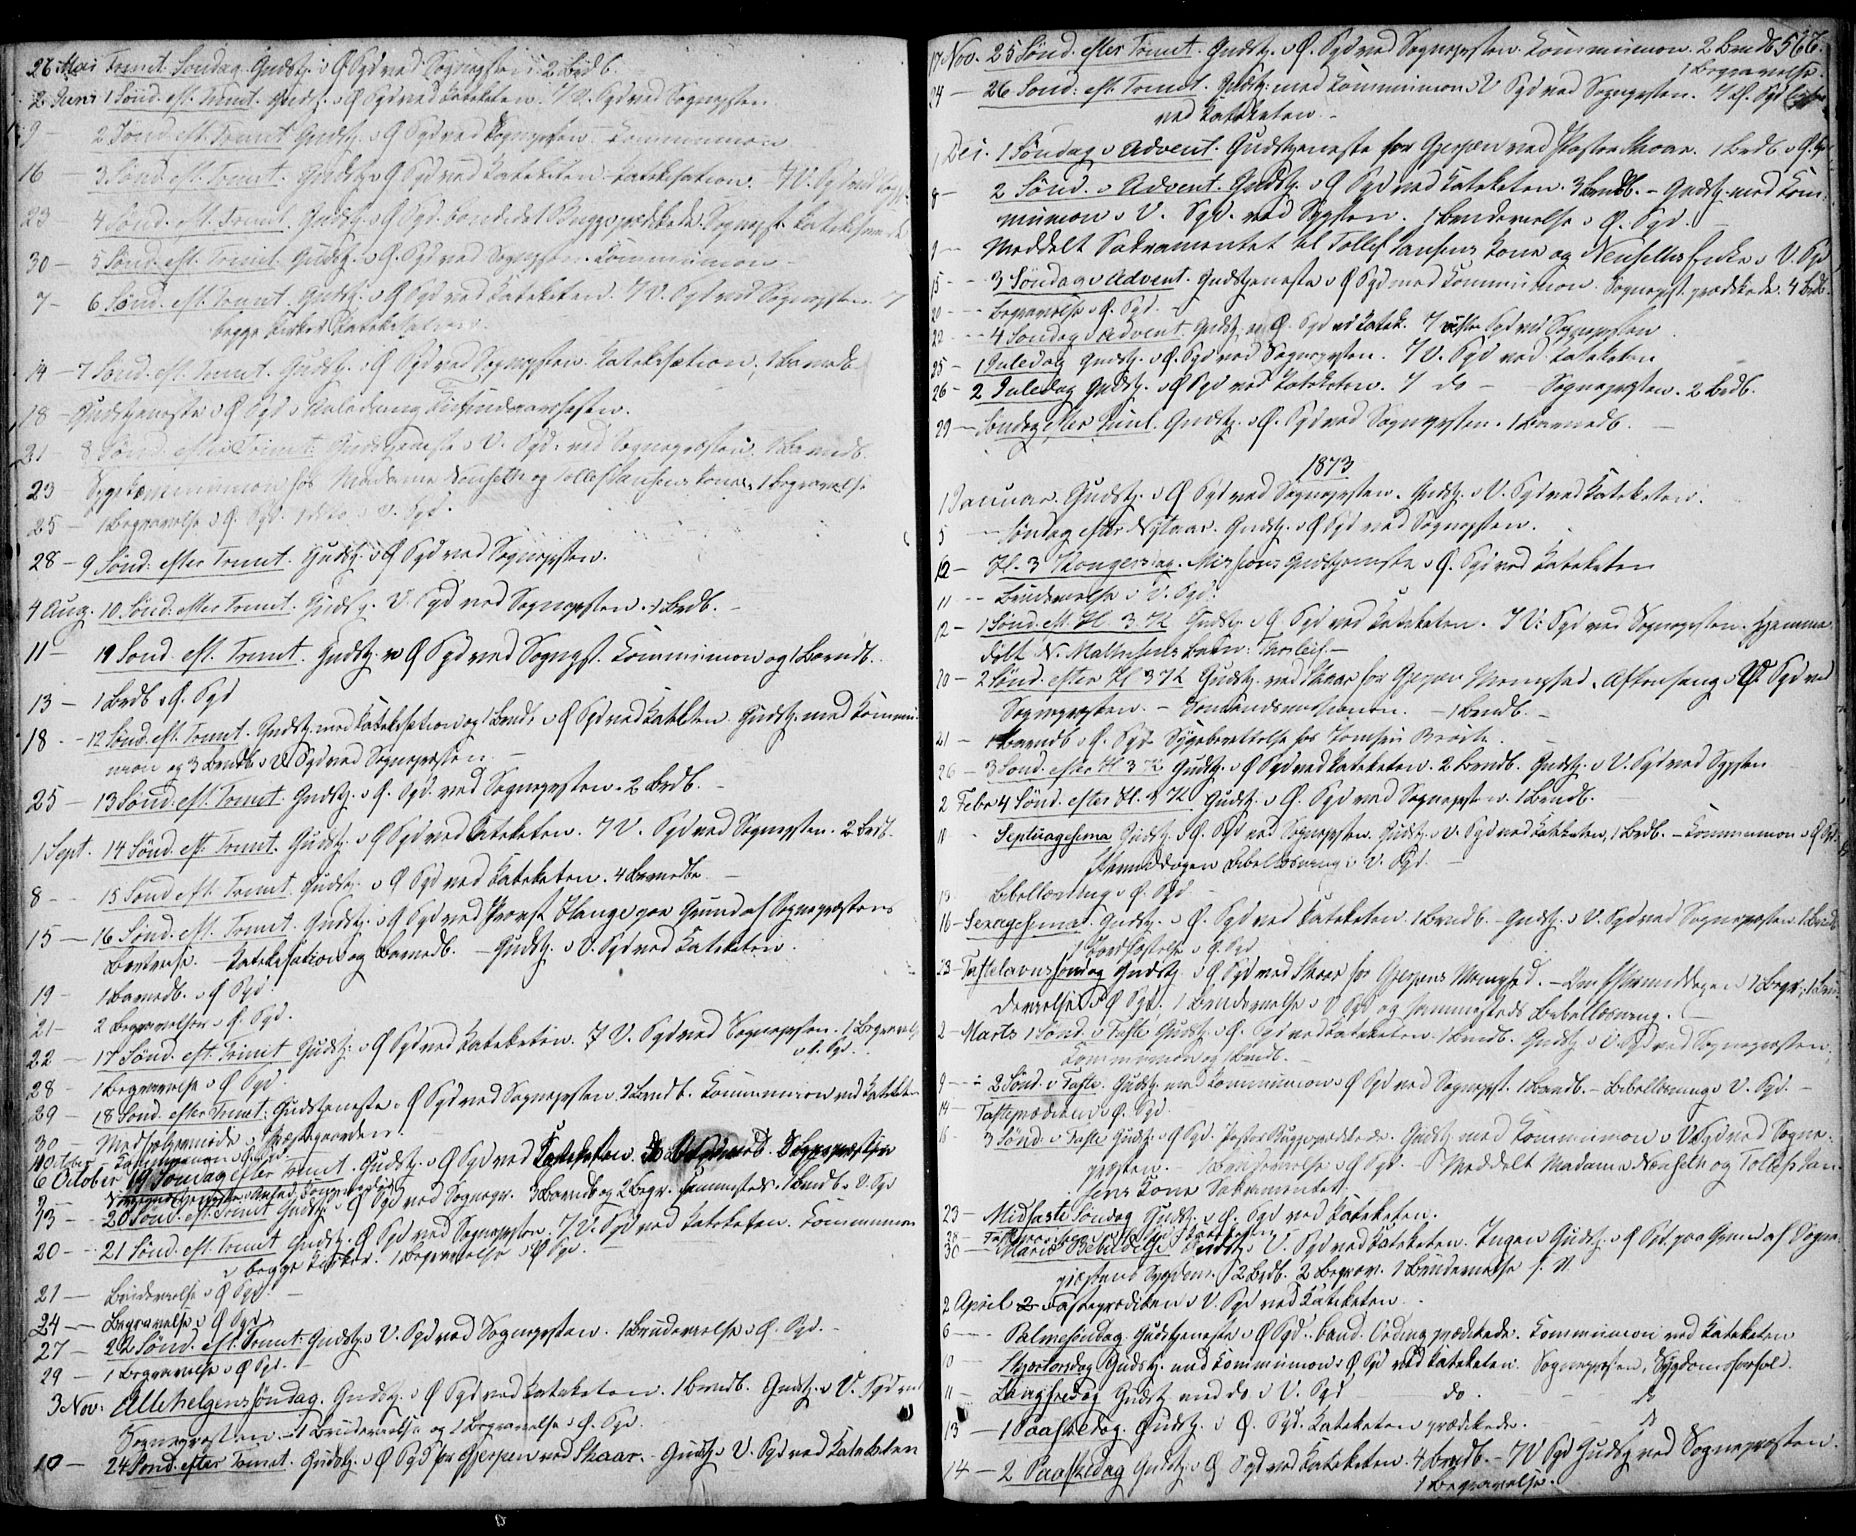 26 Mai Trinit. Søndag. Gudstj. i Ø. Pgd ved Sognepsten. 2 Brdb.
2 Juni 1 Sønd. eft. Trinit. Gudstj. i Ø Pgd ved Kateketen. I V. Pgd ved Sognepsten
9 — 2 Sønd. eft. Trinit. Gudstj. i Ø Pgd ved Sognepsten — Communion
16 — 3 Sønd. eft. Trinit. Gudstj. i Ø Pgd ved Kateketen. Katekisation. I V. Pgd ved Sognp.
23 4 Sønd. eft. Trinit. Gudstj. i Ø Pgd. Cand. Bugge prædikede. Sognepst. katekiserede
30 — 5 Sønd. eft. Trinit. Gudstj. i Ø. Pgd ved Sognepsten. Communion —
7 — 6 Sønd. eft. Trinit. Gudstj. i Ø Pgd ved Kateketen. I V. Pgd ved Sognepsten. I
begge Kirker Katekisation.
14 — 7 Sønd. eft. Trinit. Gudstj. i Ø Pgd ved Sognepsten. Katekisation, 1 Barnedb.
18 — Gudstjeneste i Ø Pgd i Anledning Tusindaarsfesten.
21 — 8 Sønd. efter Trinit. Gudstjeneste i V. Pgd. ved Sognepræsten. 1 Barnedb.
23 — Sygekommunion hos Madame Nenseth og Tollef Jansens Kone. 1 Begravelse
25 — 1 Begravelse i Ø. Pgd. 1 do i V. Pgd.
28 — 9 Sønd. efter Trinit. Gudstj. i Ø Pgd ved Sognepsten.
4 Aug. 10. Sønd. efter Trinit. Gudstj. V. Pgd ved Sognepsten. 1 Brdb. —
11 — 11 Sønd. eft. Trinit. Gudstj. i Ø Pgd ved Sognepst. Communion og 1 Barndb.
13 — 1 Brdb i Ø. Pgd
18 — 12 Sønd. eft. Trinit. Gudstj. med Katekisation og 1 Brndb i Ø Pgd ved Katkten. Gudstj. med Commu-
nion og 3 Brndb i V. Pgd ved Sognepræsten
25 — 13 Sønd. eft. Trinit. Gudstj. i Ø. Pgd. ved Sognepsten. 2 Brdb. —
1 Sept. 14 Sønd. eft. Trinit. Gudstj. i Ø Pgd ved Kateketen. I V. Pgd ved Sognepsten. 2 Brdb.
8 — 15 Sønd eft. Trinit. Gudstj. i Ø Pgd ved Kateketen. 4 Barnedb. —
15 — 16 Sønd. eft. Trinit. Gudstj. i Ø Pgd ved Provst Flange paa Grund af Sognepræstens
Bortreise. — Katekisation og Barnedb. — Gudstj. i V. Pgd ved Kateketen.
19 — 1 Barnedb. i Ø Pgd.
21 — 2 Begravelser i Ø. Pgd.
22 — 17 Sønd. eft. Trinit Gudstj. i Ø Pgd ved Kateketen. I V. Pgd ved Sognepsten. 1 Begravels
i Ø. Pgd.
28 — 1 Begravelse i Ø Pgd.
29 — 18 Sønd. efter Trinit. Gudstjeneste i Ø Pgd ved Sognepsten. 2 Barndb. Communion ved Katekten
30 — Præstegaarden.
6 October 19 Søndag efter Trinit. Gudstj. i Ø. Pgd ved Kateketen.
13 — 20 Sønd. eft. Trinit Gudstj. i Ø Pgd ved Sognepr. 3 Barndb og 2 Begr. sammesteds. 1 Brndb. i V. Pgd
20 — 21 Sønd. eft. Trinit Gudstj. Ø Pgd ved Sognepsten. I V. Pgd ved Kateketen. Communion
i begge Kirker. 1 Begravelse i Ø Pgd.
21 — Brudevielse i Ø Pgd.
24 — Begravelse i Ø Pgd.
27 — 22 Sønd. eft. Trinit. Gudstj. i V. Pgd ved Sognepsten. 1 Brudevielse i Ø. Pgd. —
29 — 1 Begravelse i Ø Pgd. —
3 Nov. Allehelgenssøndag. Gudstj. i Ø Pgd ved Kateketen. 1 Brndb. Gudstj. i V. Pgd ved
Sognepræsten. — 1 Brudevielse og 1 Begravelse i Ø. Pgd.
10 — 24 Sønd. efter Trinit. Gudstj. i Ø Pgd for Gjerpen ved Skaar. — Gudstj i V. Pgd ved Kateketen
17 Nov. 25 Sønd. efter Trinit. Gudstj. i Ø. Pgd ved Sognepsten. Communion. 2 Brndb. 566.
1 Begravelse.
24 — 26 Sønd. eft. Trinit. Gudstj. med Communion i V Pgd ved Sognepsten. I Ø. Pgd
ved Kateketen. —
1 Dec. 1 Søndag i Advent. Gudstjeneste for Gjerpen ved Pastor Skaar. 1 Brdb. i Ø. Pgd
8 — 2 Sønd. i Advent. Gudstj. i Ø Pgd ved Kateketen. 3 Brndb. — Gudstj. med Com-
munion i V. Pgd. ved Sgpsten. 1 Brudevielse i Ø. Pgd. —
9 — Meddelt Sakramentet til Tollef Jansens Kone og Nenseths Enke i V. Pgd
15 — 3 Søndag i Advent. Gudstjeneste i Ø Pgd med Communion. Sognepst. prædikede. 4 Brdb.
20 — Begravelse i Ø. Pgd.
22 — 4 Søndag i Advent. Gudstj. i Ø. Pgd ved Katek. I Vestre Pgd ved Sognepsten
25 — 1 Juledag Gudstj. i Ø. Pgd ved Sognepsten. I V. Pgd ved Kateketen
26 — 2 Juledag Gudstj. i Ø Pgd ved Kateketen. I do — Sognepsten. 2 Brdb.
29 — Søndag efter Juul. Gudstj. i Ø. Pgd ved Sognepsten. 1 Barnedb. —
1873
1 Januar. Gudstj. i Ø Pgd ved Sognepsten. Gudstj. i V. Pgd ved Kateketen.
5 — Søndag efter Nytaar. Gudstj. i Ø Pgd ved Sognepsten.
— H. 3 Kongersdag. Missions Gudstjeneste i Ø. Pgd ved Kateketen
11 — Brudevielse i V. Pgd.
12 — 1 Sønd. eft. H. 3 K Gudstj. i Ø. Pgd ved Kateketen. I V. Pgd ved Sognepsten. Hjemme
døbt N. Barn: Thorleif. —
20 — 2 Sønd. efter H 3 K Gudstj. ved Skaar for Gjerpens Menighed. Aftensang i Ø Pgd ved
Sognepræsten. — — 1 Brndb. —
21 — 1 Barndb i Ø. Pgd. Sygeberettelse hos
26 — 3 Sønd. efter H 3 K Gudstj. i Ø Pgd ved Kateketen. 2 Brndb. Gudstj. i V. Pgd ved Sgpsten
2 Febr 4 Sønd. efter H. 3 K Gudstj. i Ø. Pgd ved Sognepsten. 1 Brndb. —
Septuagesima Gudstj. i Ø. Pgd ved Sognepsten. Gudstj. i V. Pgd ved Kateketen, 1 Brdb. — Communion i Ø Pgd.
Eftermiddagen Bibellæsning i V. Pgd. —
Bibellæsning i Ø. Pgd. —
16 — Sexagesima Gudstj. i Ø. Pgd ved Kateketen. 1 Brndb. — Gudstj. i V. Pgd ved Sognepsten. 1 Brndb
1 Jordfæstelse i Ø. Pgd.
23 — Fastelavnssøndag Gudstj. i Ø. Pgd ved Skaar for Gjerpens Menighed. — Om Eftermiddagen 1 Begr. 1 Bru-
devielse i Ø Pgd. 1 Brudevielse i V Pgd og sammesteds Bibellæsning.
2 — Marts 1 Sønd. i Faste Gudstj. i Ø. Pgd ved Kateketen. 1 Brndb. Gudstj. i V. Pgd ved Sognepræsten.
Communion og 1 Brndb. —
9 — 2 Sønd. i Faste. Gudstj. med Communion i Ø Pgd ved Sognepst. 1 Barndb. — Bibellæsning i V. Pgd. —
14 — Fasteprædiken i Ø. Pgd.
16 — 3 Sønd. i Faste Gudstj. i Ø. Pgd. Pastor Bugge prædikede. Gudstj. med Communion i V. Pgd ved Sogne-
psten. — 1 Brudevielse i Ø. Pgd. — Meddelt Madame Nenseth og Tollef Jan-
sens Kone Sakramentet.
23 — Midfaste Søndag Gudstj. i Ø. Pgd ved Kateketen.
30 — Mariæ Bebudelse Gudstj. i V. Pgd ved Kateketen. Ingen Gudstj. i Ø Pgd. paa Grund af Sogne-
præstens Sygdom. 2 Brdb. 2 Begrav. 1 Brudevielse
2 April Fasteprædiken i V. Pgd ved Kateketen.
6 — Palmesøndag. Gudstjeneste i Ø Pgd. Cand. prædikede. Communion ved Kateketen
10 Skjærtorsdag Gudstj. med Communion i Ø Pgd ved Kateketen. Sognepsten, Sygdomsforfald.
11 — Langfredag Gudstj. med do i V. Pgd do. do
13 — 1 Paaskedag. Gudstj. i Ø. Pgd. Kateketen prædikede. do
14 — 2 Paaskedag Gudstj. i Ø Pgd ved Kateketen. 4 Brndb. — I V. Pgd Gudstj ved Sognepræsten.
1 Begravelse.